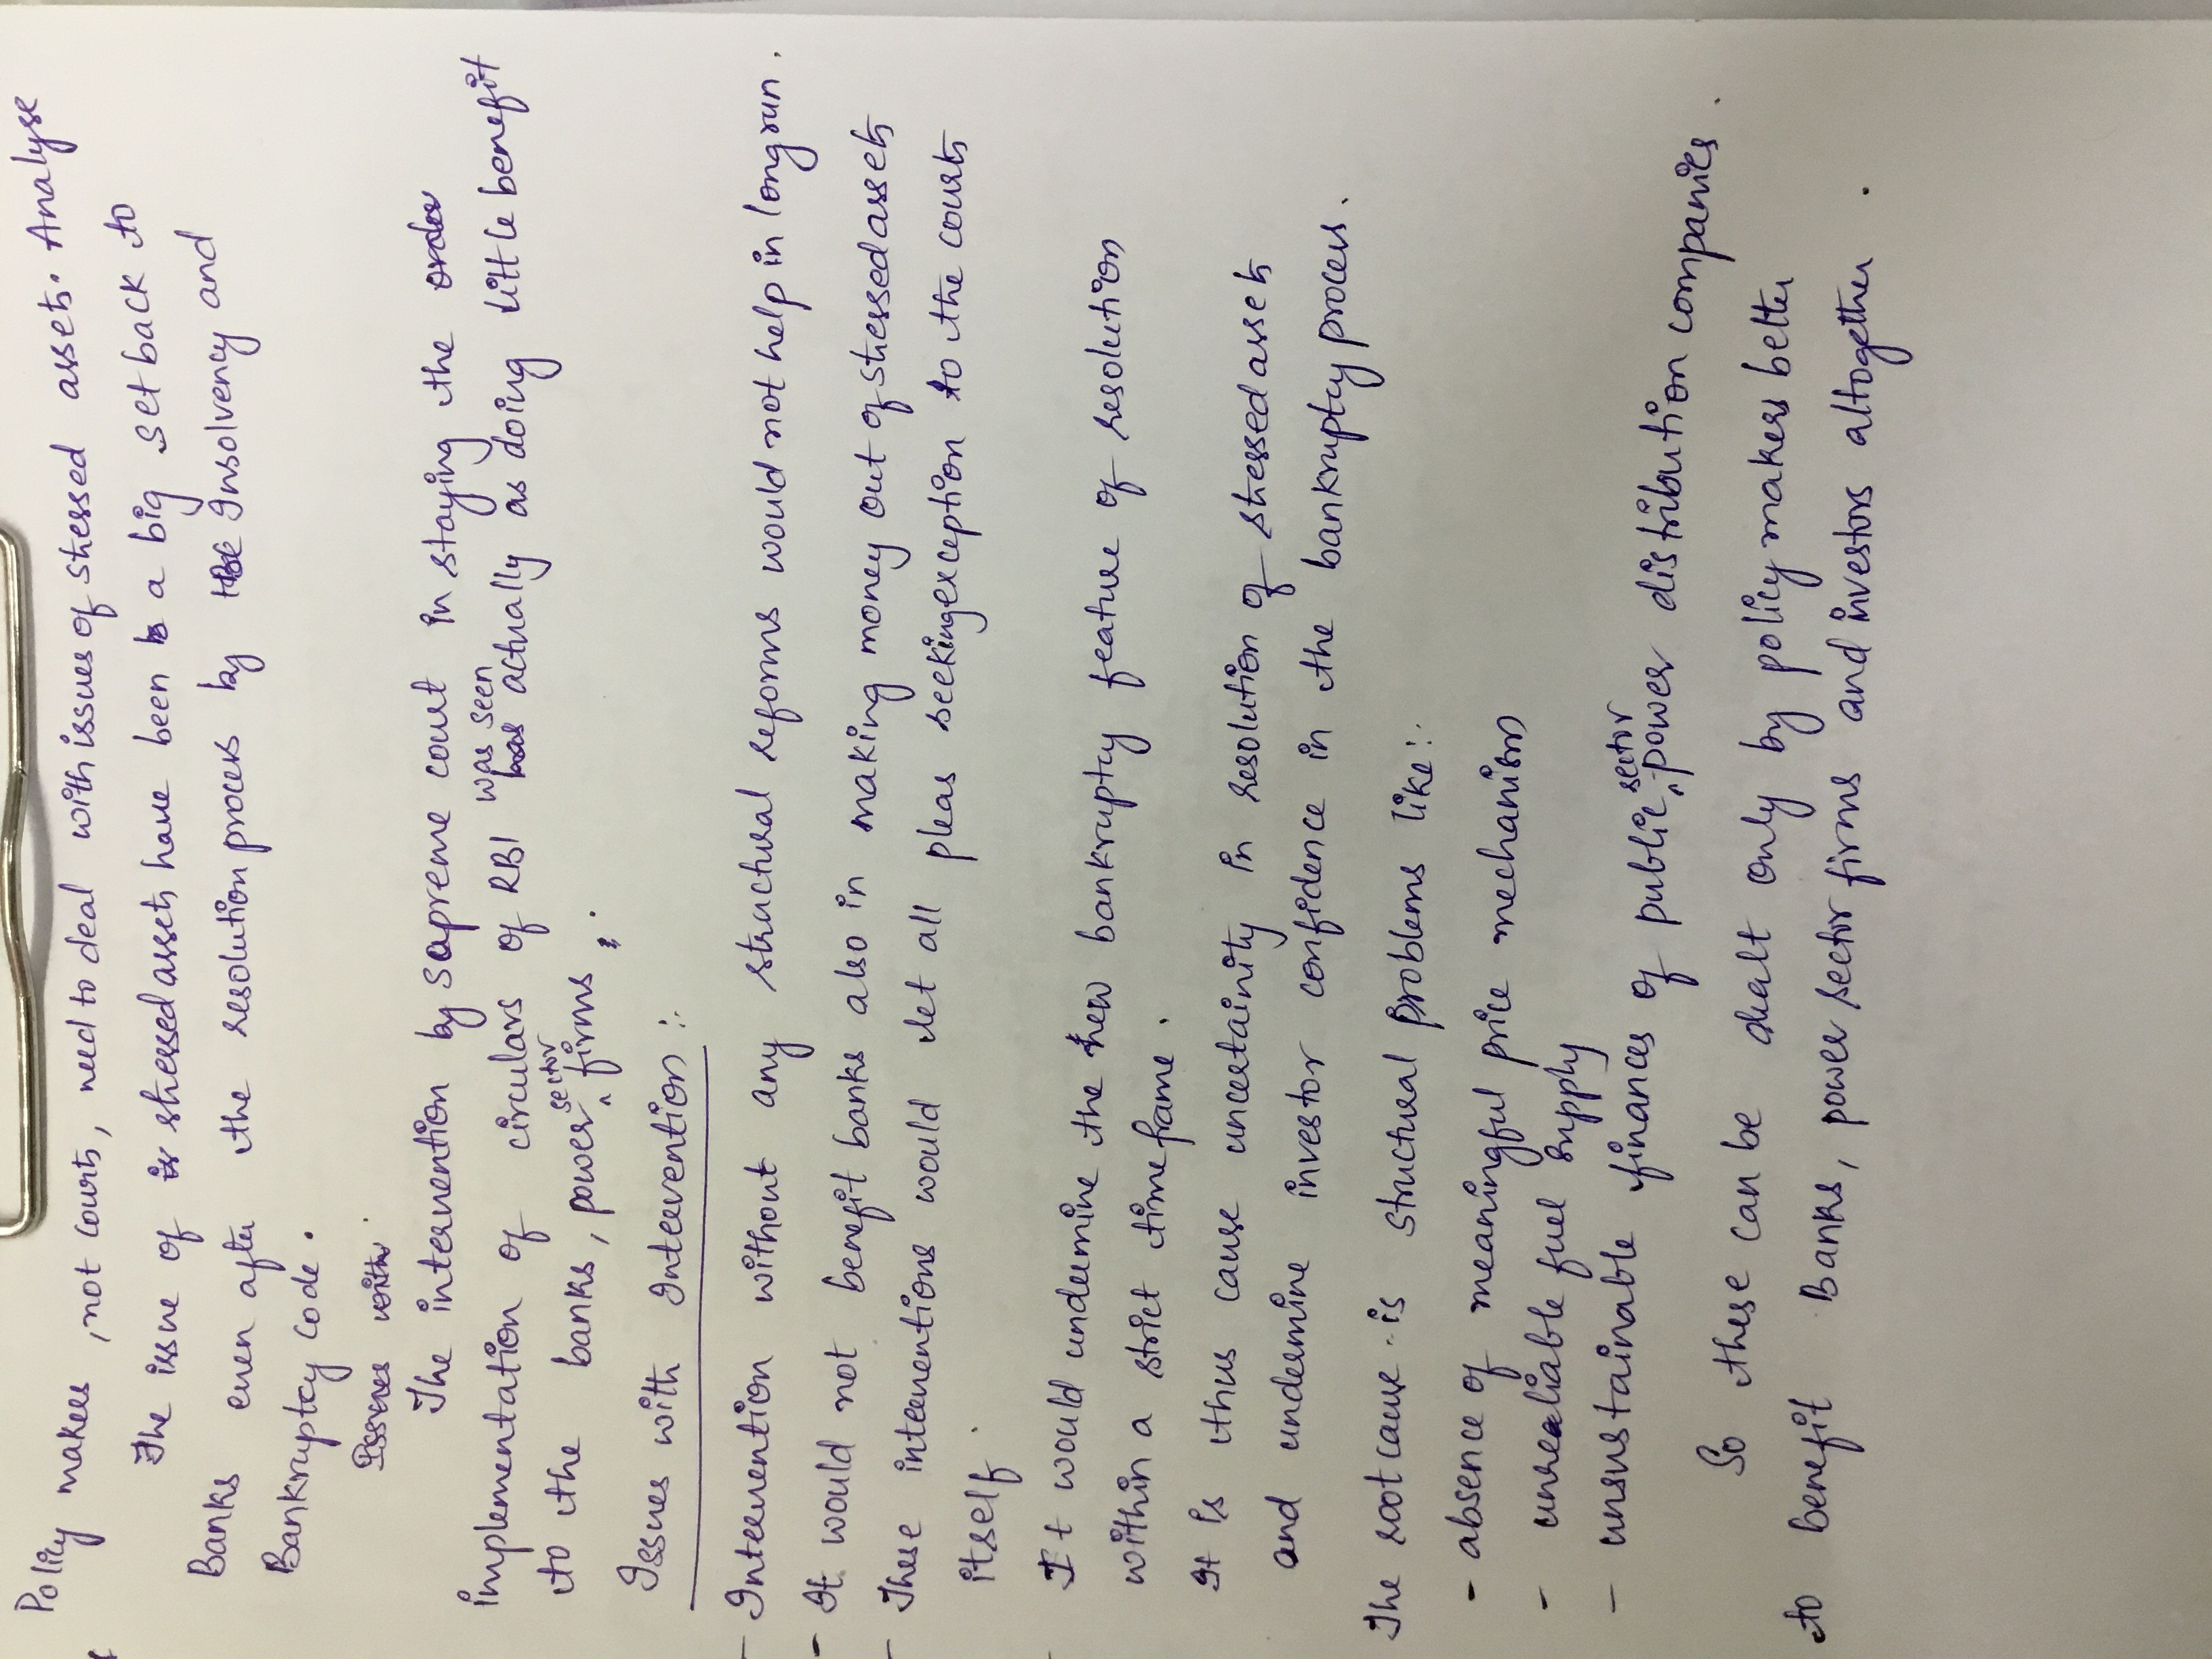 Policy makers, not courts, need to deal with issues of stressed assets. Analyse
The issue of is stressed assets have been b a big set back to
Banks even after the resolution process by the Insolvency and
Bankruptcy code.
Issues with
The intervention by supreme court in staying the order
implementation of circulars of RBI was seen has actually as doing little benefit
to the banks, power sector firms.
Issues with Intervention:
- Intervention without any structural reforms would not help in long run.
- It would not benefit banks also in making money out of stressed assets
- These interventions would let all pleas seeking exception to the courts
itself.
- It would undermine the new bankruptcy feature of resolution
within a strict timeframe.
It is thus cause uncertainity in resolution of stressed assets
and undermine investor confidence in the bankruptcy process.
The root cause is structural problems like:
- absence of meaningful price mechanism
- unreliable fuel supply
- unsustainable finances of public sector power distribution companies.
So these can be dealt only by policy makers better
to benefit Banks, power sector firms and investors altogether.